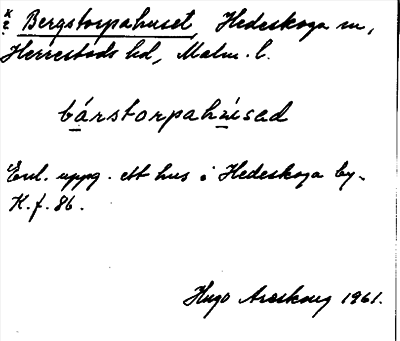 K Bergstorpahuset, Hedeskoga sn,
Herrestads hd, Malm. l.
bárstorpahúsed
Enl. uppg. ett hus i Hedeskoga by.
K.f. 86.
Hugo Areskoug 1961.